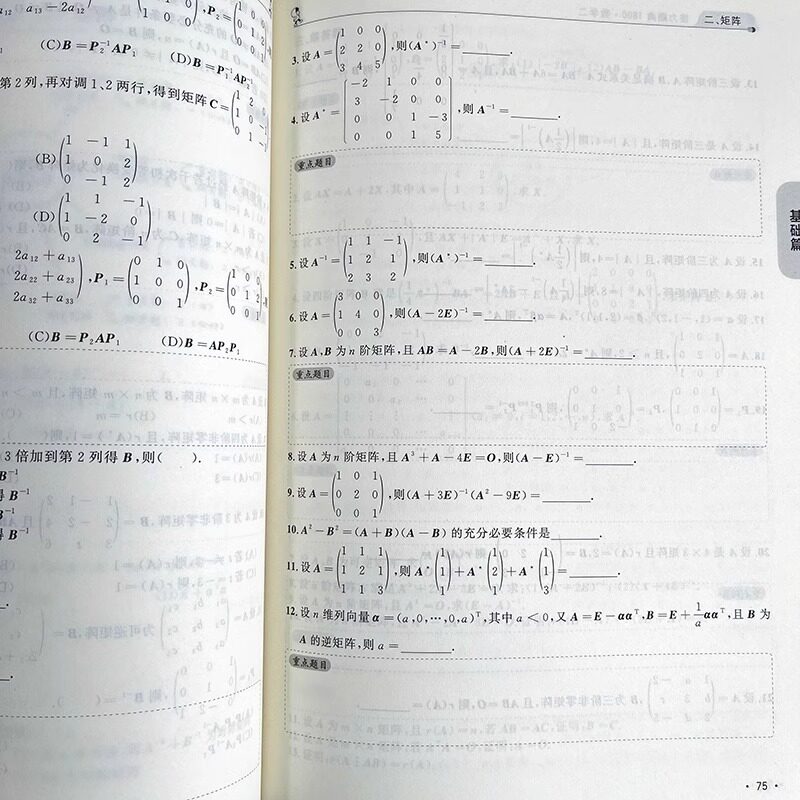 a₁₃ − 2a₁₂
(C) B = P₂⁻¹AP₁ (D) B = P₁⁻¹AP₂
第 2 列,再对调 1、2 两行,得到矩阵 C =
(B) ( 1 −1 1
1 0 2
0 −1 2 )
(D) ( 1 1 −1
1 −2 0
0 2 −1 )
2a₁₂ + a₁₃
2a₂₂ + a₂₃
2a₃₂ + a₃₃
, P₁ = ( 0 1 0
1 0 0
0 0 1 ), P₂ = ( 1 0 0
0 1 2
0 0 1 )
(C) B = P₂AP₁ (D) B = AP₂P₁
3 倍加到第 2 列得 B,则( ).
B⁻¹
得 B⁻¹
B⁻¹
得 B⁻¹
二、矩阵
3. 设 A = ( 1 0 0
2 2 0
3 4 5 ), 则(A*)⁻¹ = ______.
4. 设 A* = ( −2 1 0 0
3 −2 0 0
0 0 1 −3
0 0 1 5 ), 则 A⁻¹ = ______.
重点题目
5. 设 A⁻¹ = ( 1 1 −1
1 2 1
2 3 2 ), 则(A*)⁻¹ = ______.
6. 设 A = ( 3 0 0
1 4 0
0 0 3 ), 则(A − 2E)⁻¹ = ______.
7. 设 A,B 为 n 阶矩阵,且 AB = A − 2B,则(A + 2E)⁻¹ = ______.
重点题目
8. 设 A 为 n 阶矩阵,且 A³ + A − 4E = O,则(A − E)⁻¹ = ______.
9. 设 A = ( 1 0 1
0 2 0
0 0 1 ), 则(A + 3E)⁻¹(A² − 9E) = ______.
10. A² − B² = (A + B)(A − B) 的充分必要条件是______.
11. 设 A = ( 1 1 1
1 2 1
1 1 3 ), 则 A*( 1
1
1 ) + A*( 1
2
1 ) + A*( 1
1
3 ) = ______.
12. 设 n 维列向量 α = (a,0,⋯,0,a)ᵀ,其中 a < 0,又 A = E − ααᵀ,B = E + 1/a ααᵀ,且 B 为
A 的逆矩阵,则 a = ______.
重点题目
基础篇
· 75 ·